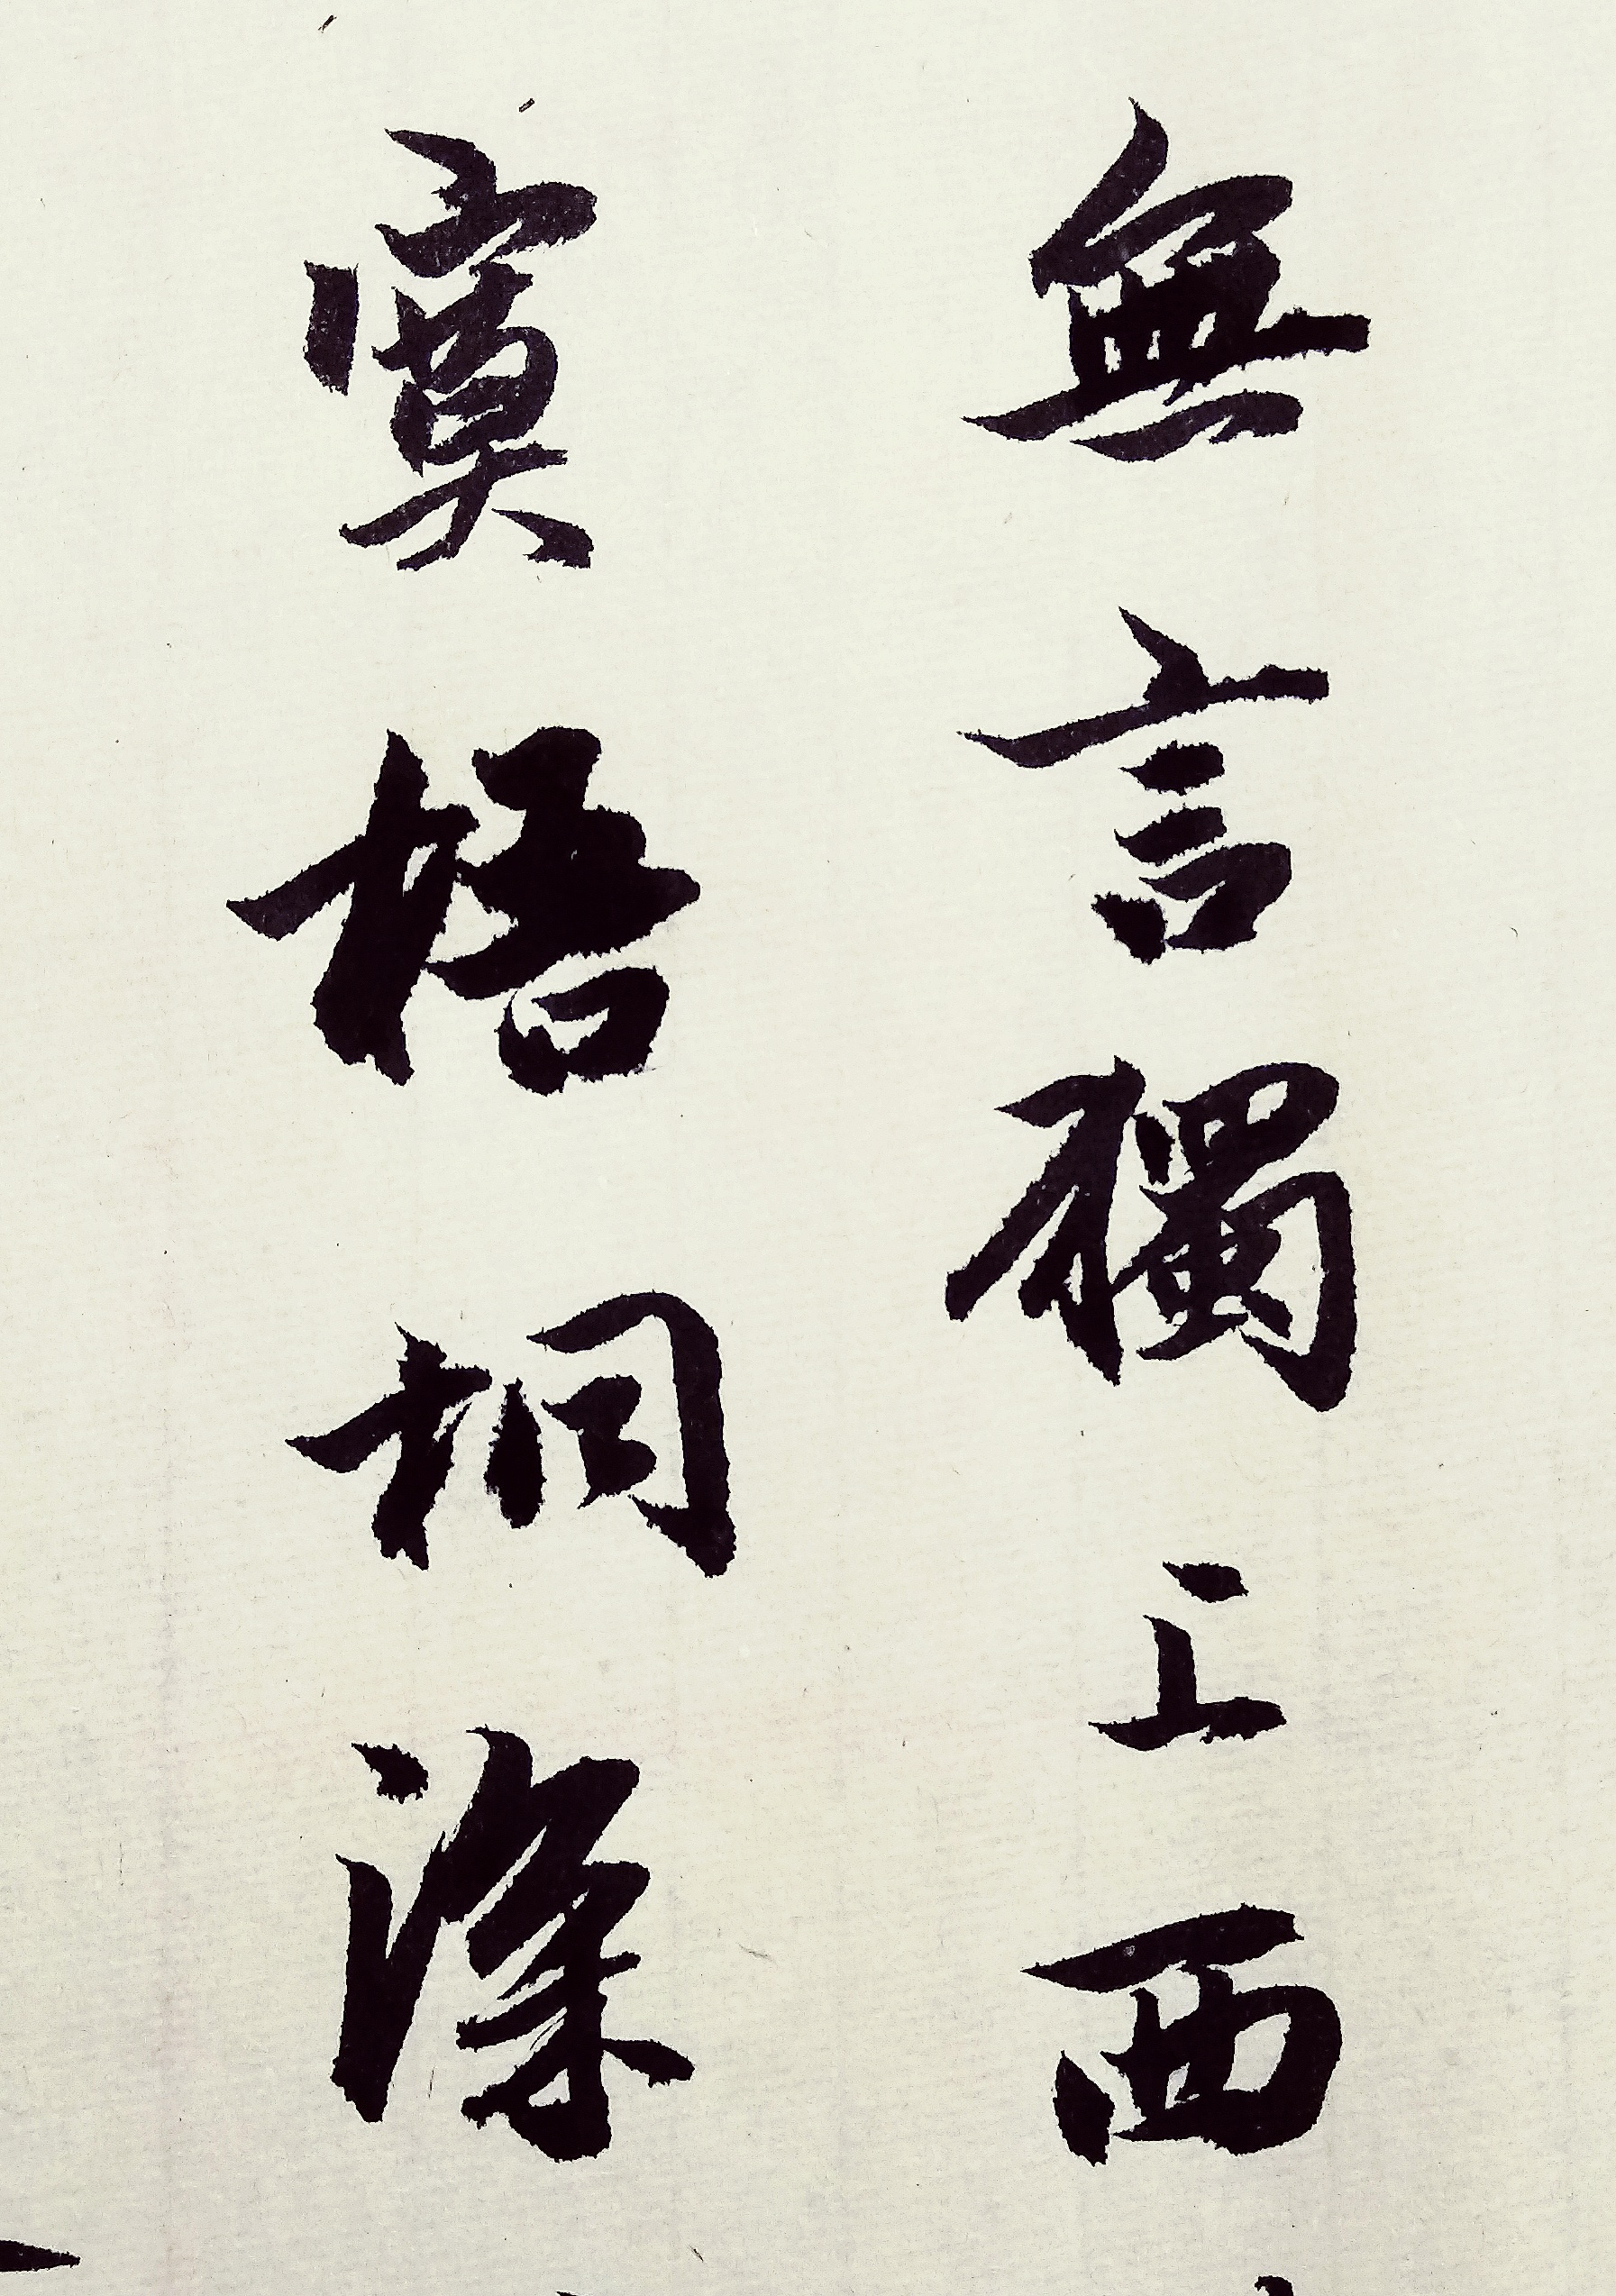 無言獨上西
寞梧桐深